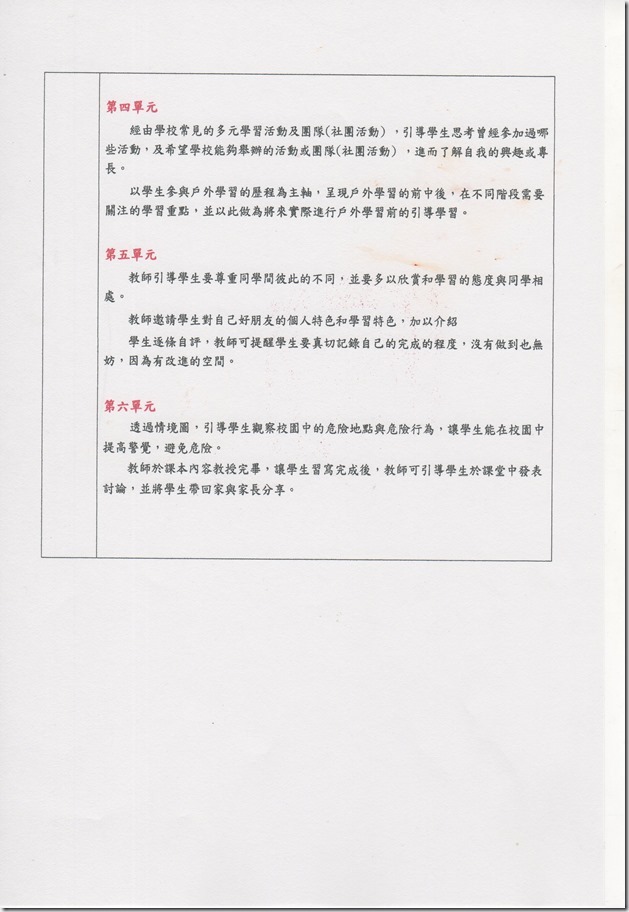 第四單元
經由學校常見的多元學習活動及團隊(社團活動)，引導學生思考曾經參加過哪
些活動，及希望學校能夠舉辦的活動或團隊(社團活動)，進而了解自我的興趣或專
長。
以學生參與戶外學習的歷程為主軸，呈現戶外學習的前中後，在不同階段需要
關注的學習重點，並以此做為將來實際進行戶外學習前的引導學習。
第五單元
教師引導學生要尊重同學間彼此的不同，並要多以欣賞和學習的態度與同學相
處。
教師邀請學生對自己好朋友的個人特色和學習特色，加以介紹
學生逐條自評，教師可提醒學生要真切記錄自己的完成的程度，沒有做到也無
妨，因為有改進的空間。
第六單元
透過情境圖，引導學生觀察校園中的危險地點與危險行為，讓學生能在校園中
提高警覺，避免危險。
教師於課本內容教授完畢，讓學生習寫完成後，教師可引導學生於課堂中發表
討論，並將學生帶回家與家長分享。